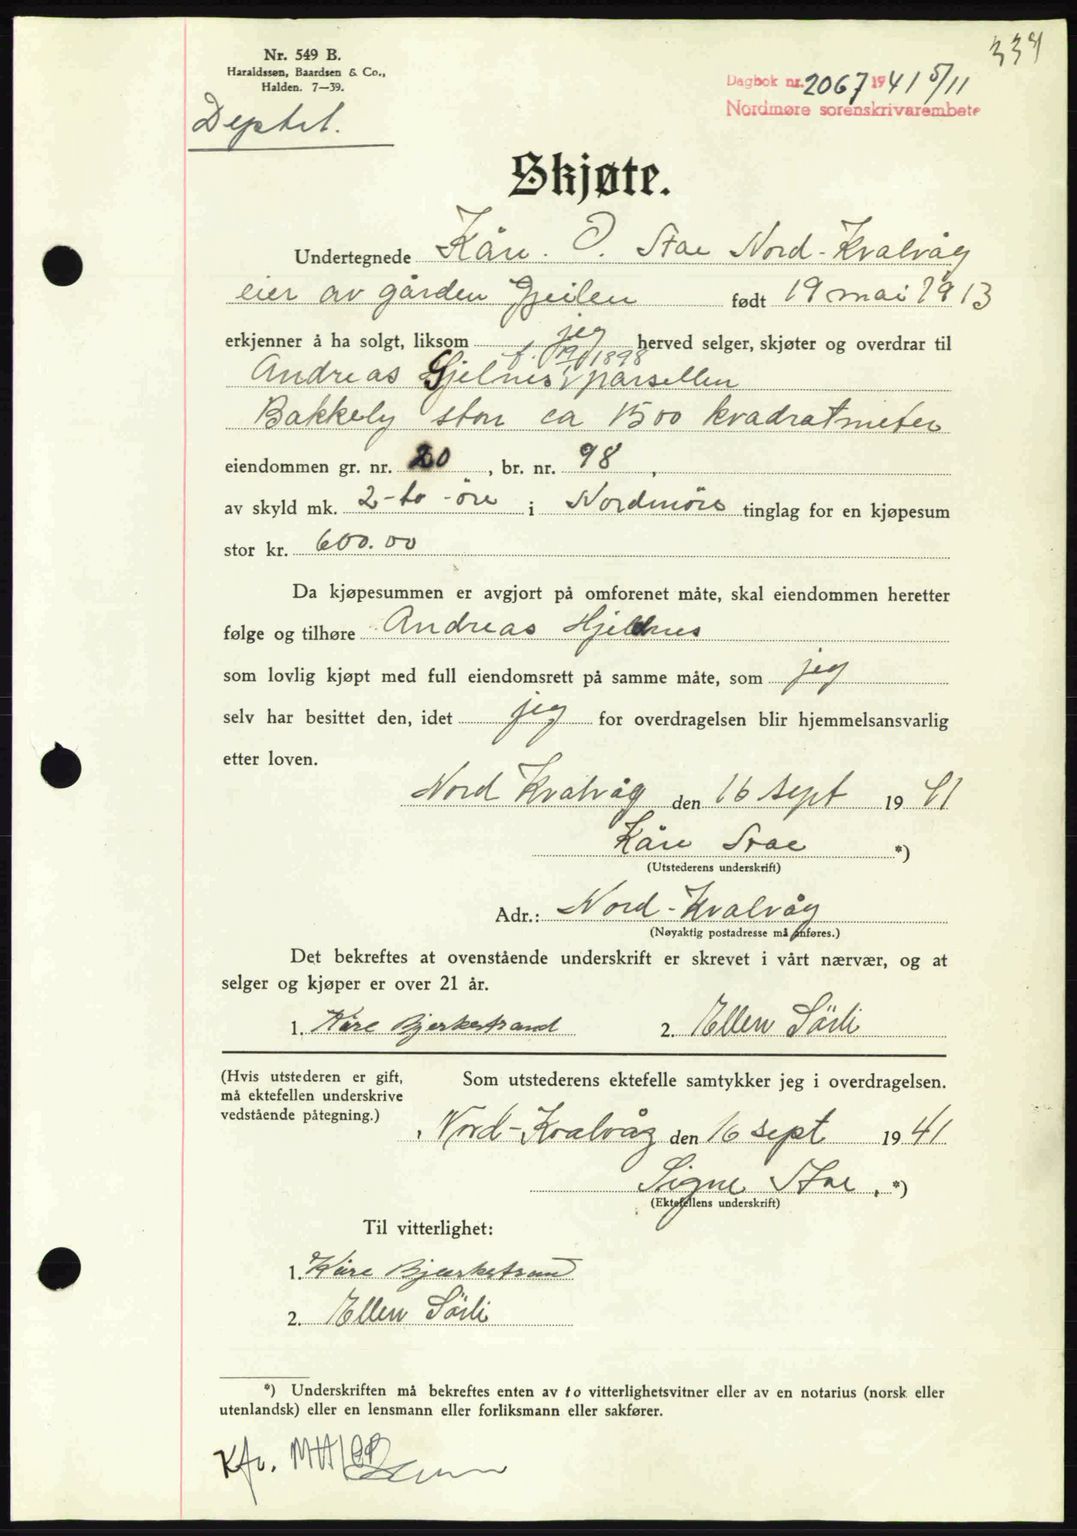 334
Nr. 549 B.
Haraldssøn, Baardsen & Co.,
Halden. 7—39.
Dagbok nr. 2067 1941 5/11
Nordmøre sorenskrivarembete
Skjøte.
Undertegnede Kåre. O. Stae Nord-Kvalvåg
eier av gården Gjeilen født 19 mai 1913
erkjenner å ha solgt, liksom jeg herved selger, skjøter og overdrar til
Andreas Gjelnes f. 1898 parsellen
Bakkely stor ca 1500 kvadratmeter
eiendommen gr. nr. 20, br. nr. 98,
av skyld mk. 2-to-öre i Nordmöre tinglag for en kjøpesum
stor kr. 600.00
Da kjøpesummen er avgjort på omforenet måte, skal eiendommen heretter
følge og tilhøre Andreas Hjelnes
som lovlig kjøpt med full eiendomsrett på samme måte, som jeg
selv har besittet den, idet jeg for overdragelsen blir hjemmelsansvarlig
etter loven.
Nord Kvalvåg den 16 sept 1941
Kåre Stae *)
(Utstederens underskrift)
Adr.: Nord-Kvalvåg
(Nøyaktig postadresse må anføres.)
Det bekreftes at ovenstående underskrift er skrevet i vårt nærvær, og at
selger og kjøper er over 21 år.
1. Kåre Bjerkestrand 2. Ellen Sörli
(Hvis utstederen er gift, Som utstederens ektefelle samtykker jeg i overdragelsen.
må ektefellen underskrive
vedstående påtegning.)
, Nord-Kvalvåg den 16 sept 1941
Signe Stae, *)
(Ektefellens underskrift)
Til vitterlighet:
1. Kåre Bjerkestrand
2. Ellen Sörli
*) Underskriften må bekreftes enten av to vitterlighetsvitner eller av en notarius (norsk eller
utenlandsk) eller en lensmann eller forliksmann eller sakfører.